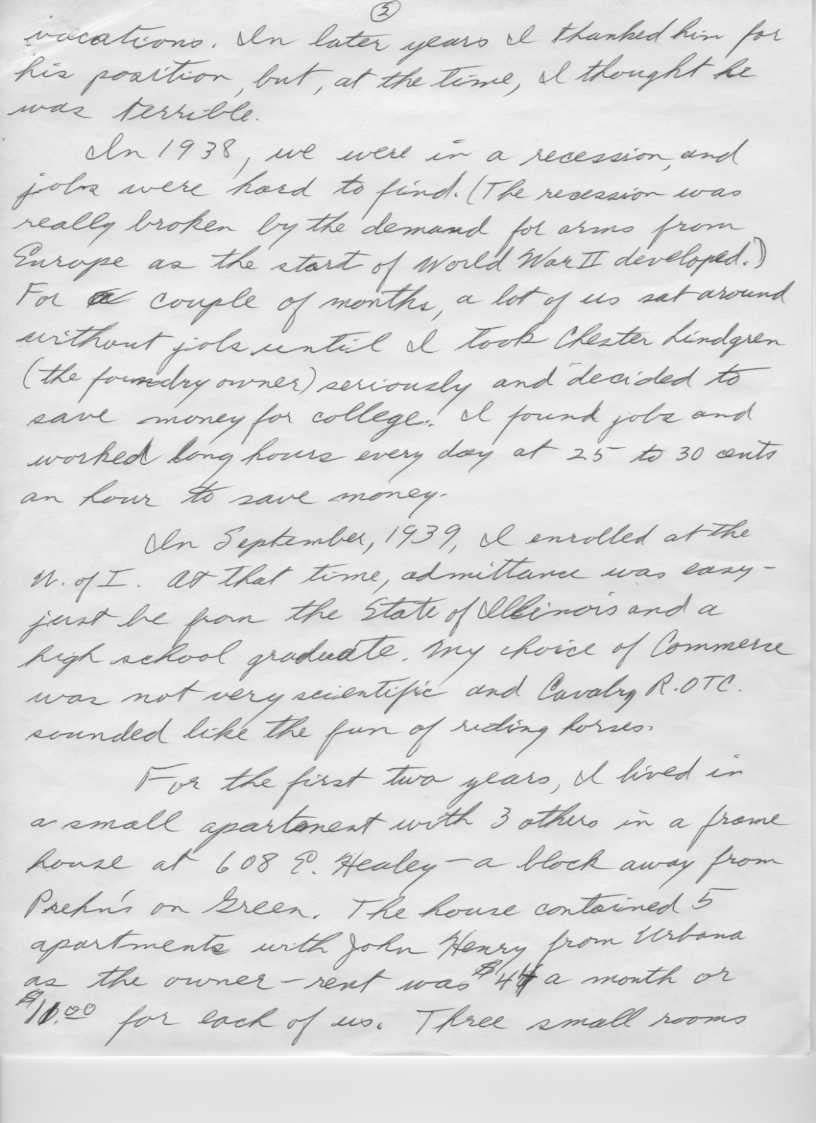 2
vacations. In later years I thanked him for
his position, but, at the time, I thought he
was terrible.
In 1938, we were in a recession, and
jobs were hard to find. (The recession was
really broken by the demand for arms from
Europe as the start of World War II developed.)
For a couple of months, a lot of us sat around
without jobs until I took Chester Lindgren
(the foundry owner) seriously and decided to
save money for college. I found jobs and
worked long hours every day at 25 to 30 cents
an hour to save money.
In September, 1939, I enrolled at the
U. of I. At that time, admittance was easy -
just be from the State of Illinois and a
high school graduate. My choice of Commerce
was not very scientific and Cavalry R.OTC.
sounded like the fun of riding horses.
For the first two years, I lived in
a small apartment with 3 others in a frame
house at 608 E. Healey - a block away from
Prehn's on Green. The house contained 5
apartments with John Henry from Urbana
as the owner - rent was $44 a month or
$11.00 for each of us. Three small rooms